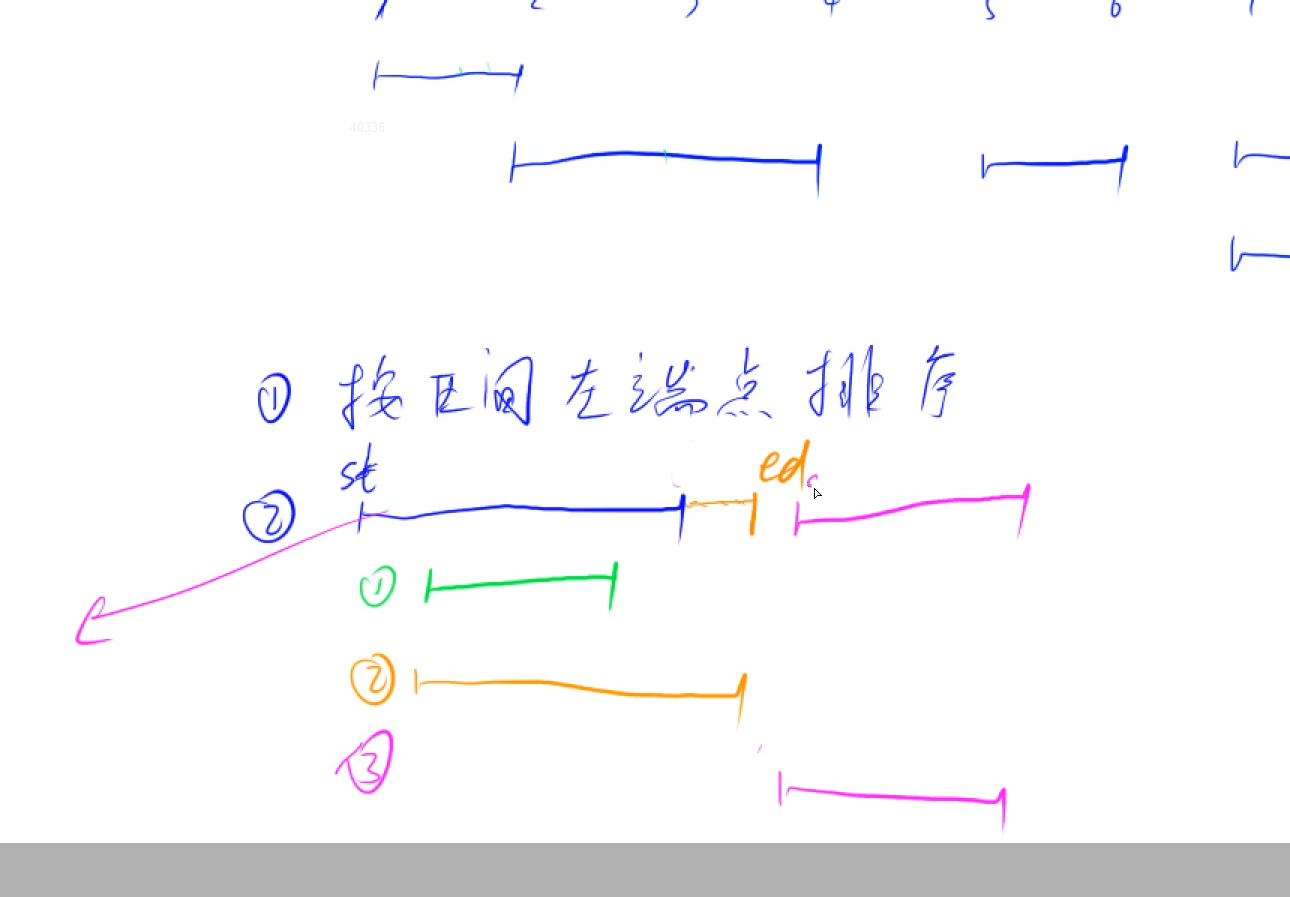 1 2 3 4 5 6 7
40336
① 按区间左端点排序
st ed
②
①
②
③